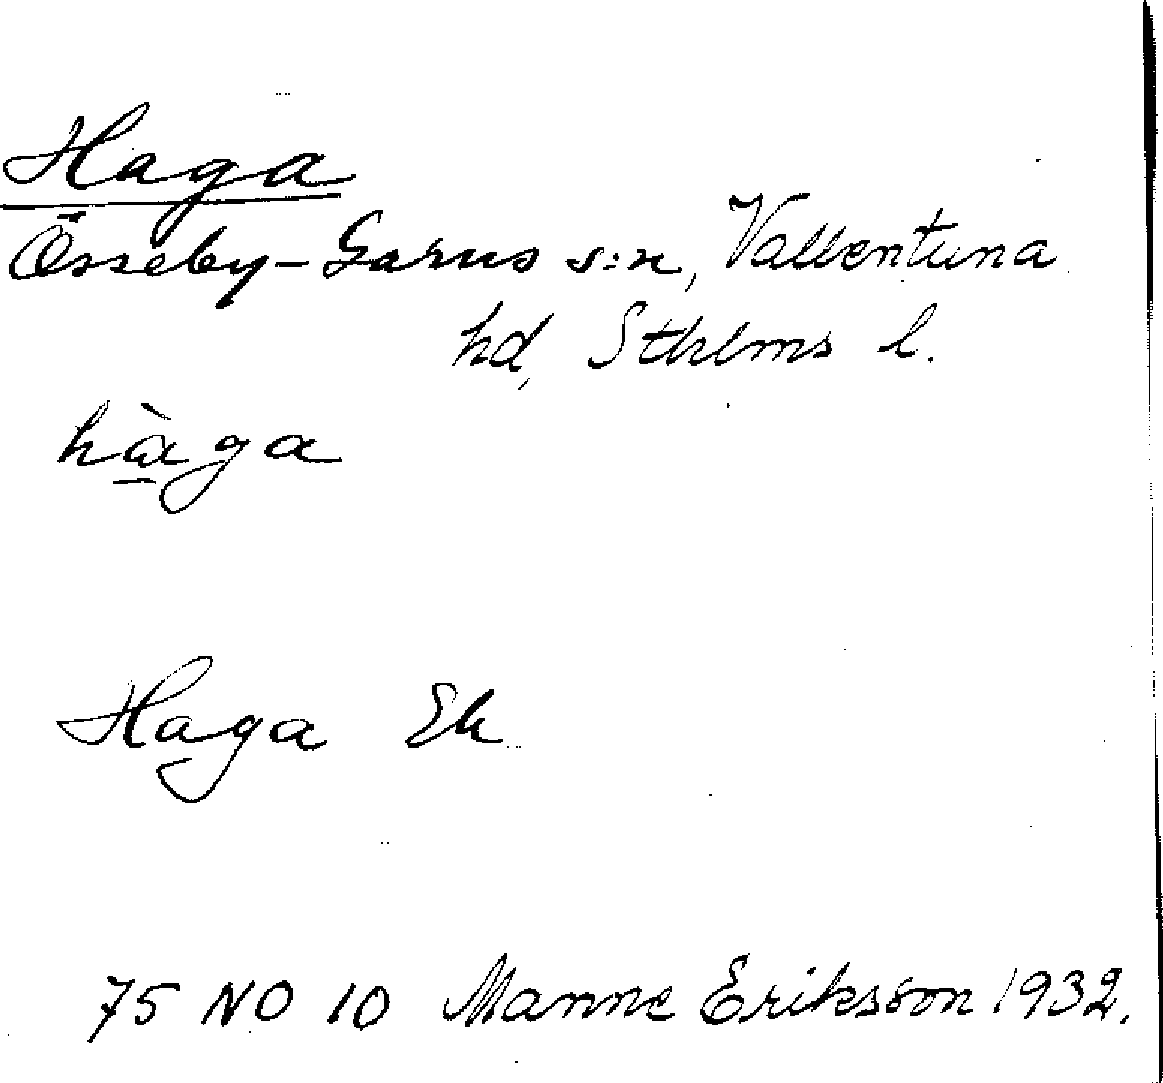 Haga
Össeby-Garns s:n, Vallentuna
hd, Sthlms l.
hà̱ga
Haga Ek
75 NO 10 Manne Eriksson 1932.